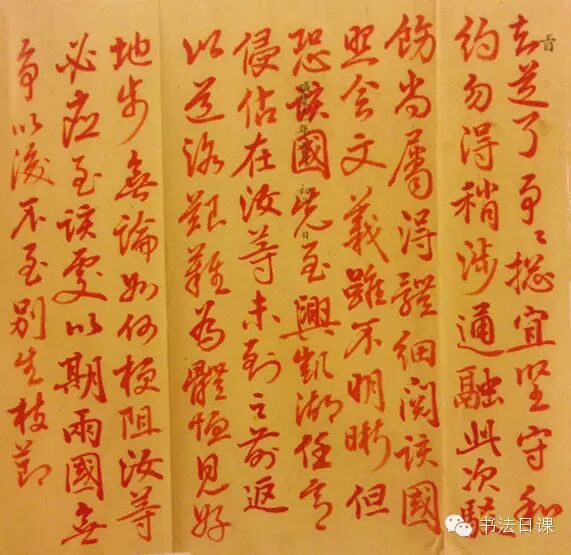 旨
知道了事〻揔宜坚守和
約勿得稍涉通融此次駁
飭尚屬得體細閱該國
照会文義雖不明晰但
恐該國先至興凱湖任意
侵佔在汝等未到之前返
以道路艱難為體恤見好
地步無論如何梗阻汝等
必應至該處以期兩國無
爭以後不至別生枝節
书法日课